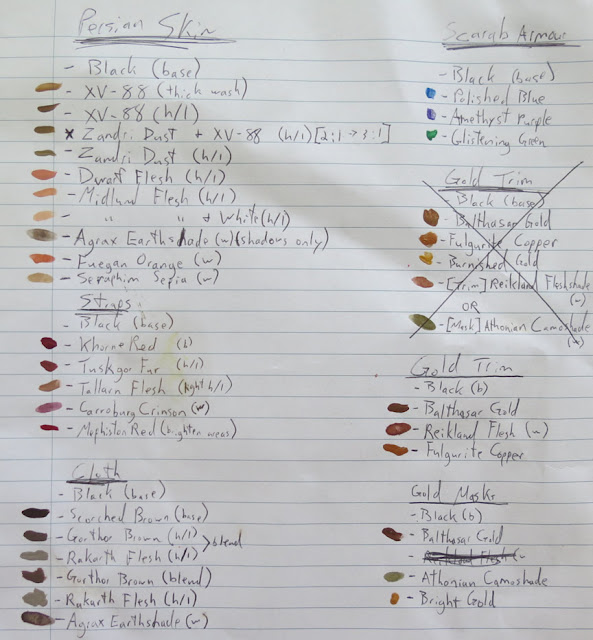 Persian Skin
- Black (base)
- XV-88 (thick wash)
- XV-88 (h/1)
x Zandri Dust + XV-88 (h/1) [2:1 → 3:1]
- Zandri Dust (h/1)
- Dwarf Flesh (h/1)
- Midlum Flesh (h/1)
- " " + White (h/1)
- Agrax Earthshade (w) (shadows only)
- Fuegan Orange (w)
- Seraphim Sepia (w)
Straps
- Black (base)
- Khorne Red (b)
- Tuskgor Fur (h/1)
- Tallarn Flesh (light h/1)
- Carroburg Crimson (w)
- Mephiston Red (brighten areas)
Cloth
- Black (base)
- Scorched Brown (base)
- Gorthor Brown (h/1)
- Rakarth Flesh (h/1) > blend
- Gorthor Brown (blend)
- Rakarth Flesh (h/1)
- Agrax Earthshade (w)
Scarab Armour
- Black (base)
- Polished Blue
- Amethyst Purple
- Glistening Green
Gold Trim
Black (base)
- Balthasar Gold
- Fulgurite Copper
- Burnished Gold
- [Trim] Reikland Fleshshade (w)
OR
- [Mask] Athonian Camoshade (w)
Gold Trim
- Black (b)
- Balthasar Gold
- Reikland Flesh (w)
- Fulgurite Copper
Gold Masks
- Black (b)
- Balthasar Gold
- Reikland Flesh (w
- Athonian Camoshade
- Bright Gold